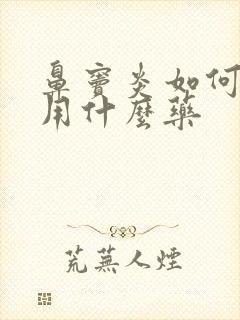 鼻竇炎如何
用什麼藥
荒蕪人煙